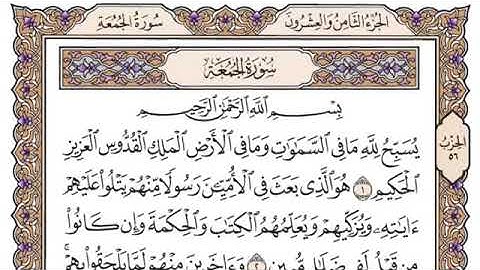 سُورَةُ الجُمُعَةِ
الجُزْءُ الثَّامِنُ وَالْعِشْرُونَ
سُورَةُ الجُمُعَةِ
بِسْمِ اللَّهِ الرَّحْمَٰنِ الرَّحِيمِ
يُسَبِّحُ لِلَّهِ مَا فِي السَّمَٰوَٰتِ وَمَا فِي الْأَرْضِ الْمَلِكِ الْقُدُّوسِ الْعَزِيزِ
الْحَكِيمِ ١ هُوَ الَّذِي بَعَثَ فِي الْأُمِّيِّـۧنَ رَسُولًا مِّنْهُمْ يَتْلُوا۟ عَلَيْهِمْ
ءَايَٰتِهِۦ وَيُزَكِّيهِمْ وَيُعَلِّمُهُمُ الْكِتَٰبَ وَالْحِكْمَةَ وَإِن كَانُوا۟
مِن قَبْلُ لَفِي ضَلَٰلٍ مُّبِينٍ ٢ وَءَاخَرِينَ مِنْهُمْ لَمَّا يَلْحَقُوا۟ بِهِمْ
الحِزْبُ
٥٦